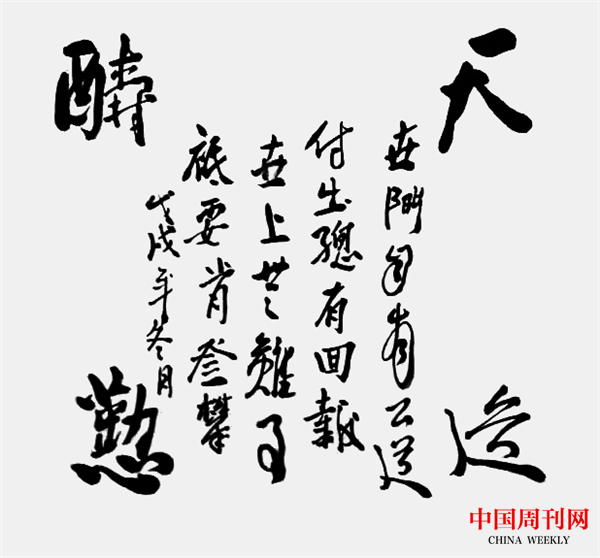 天道
醻懃
世間自有公道
付出總有回報
世上無難事
祗要肯登攀
戊戌年冬月
中国周刊网
CHINA WEEKLY